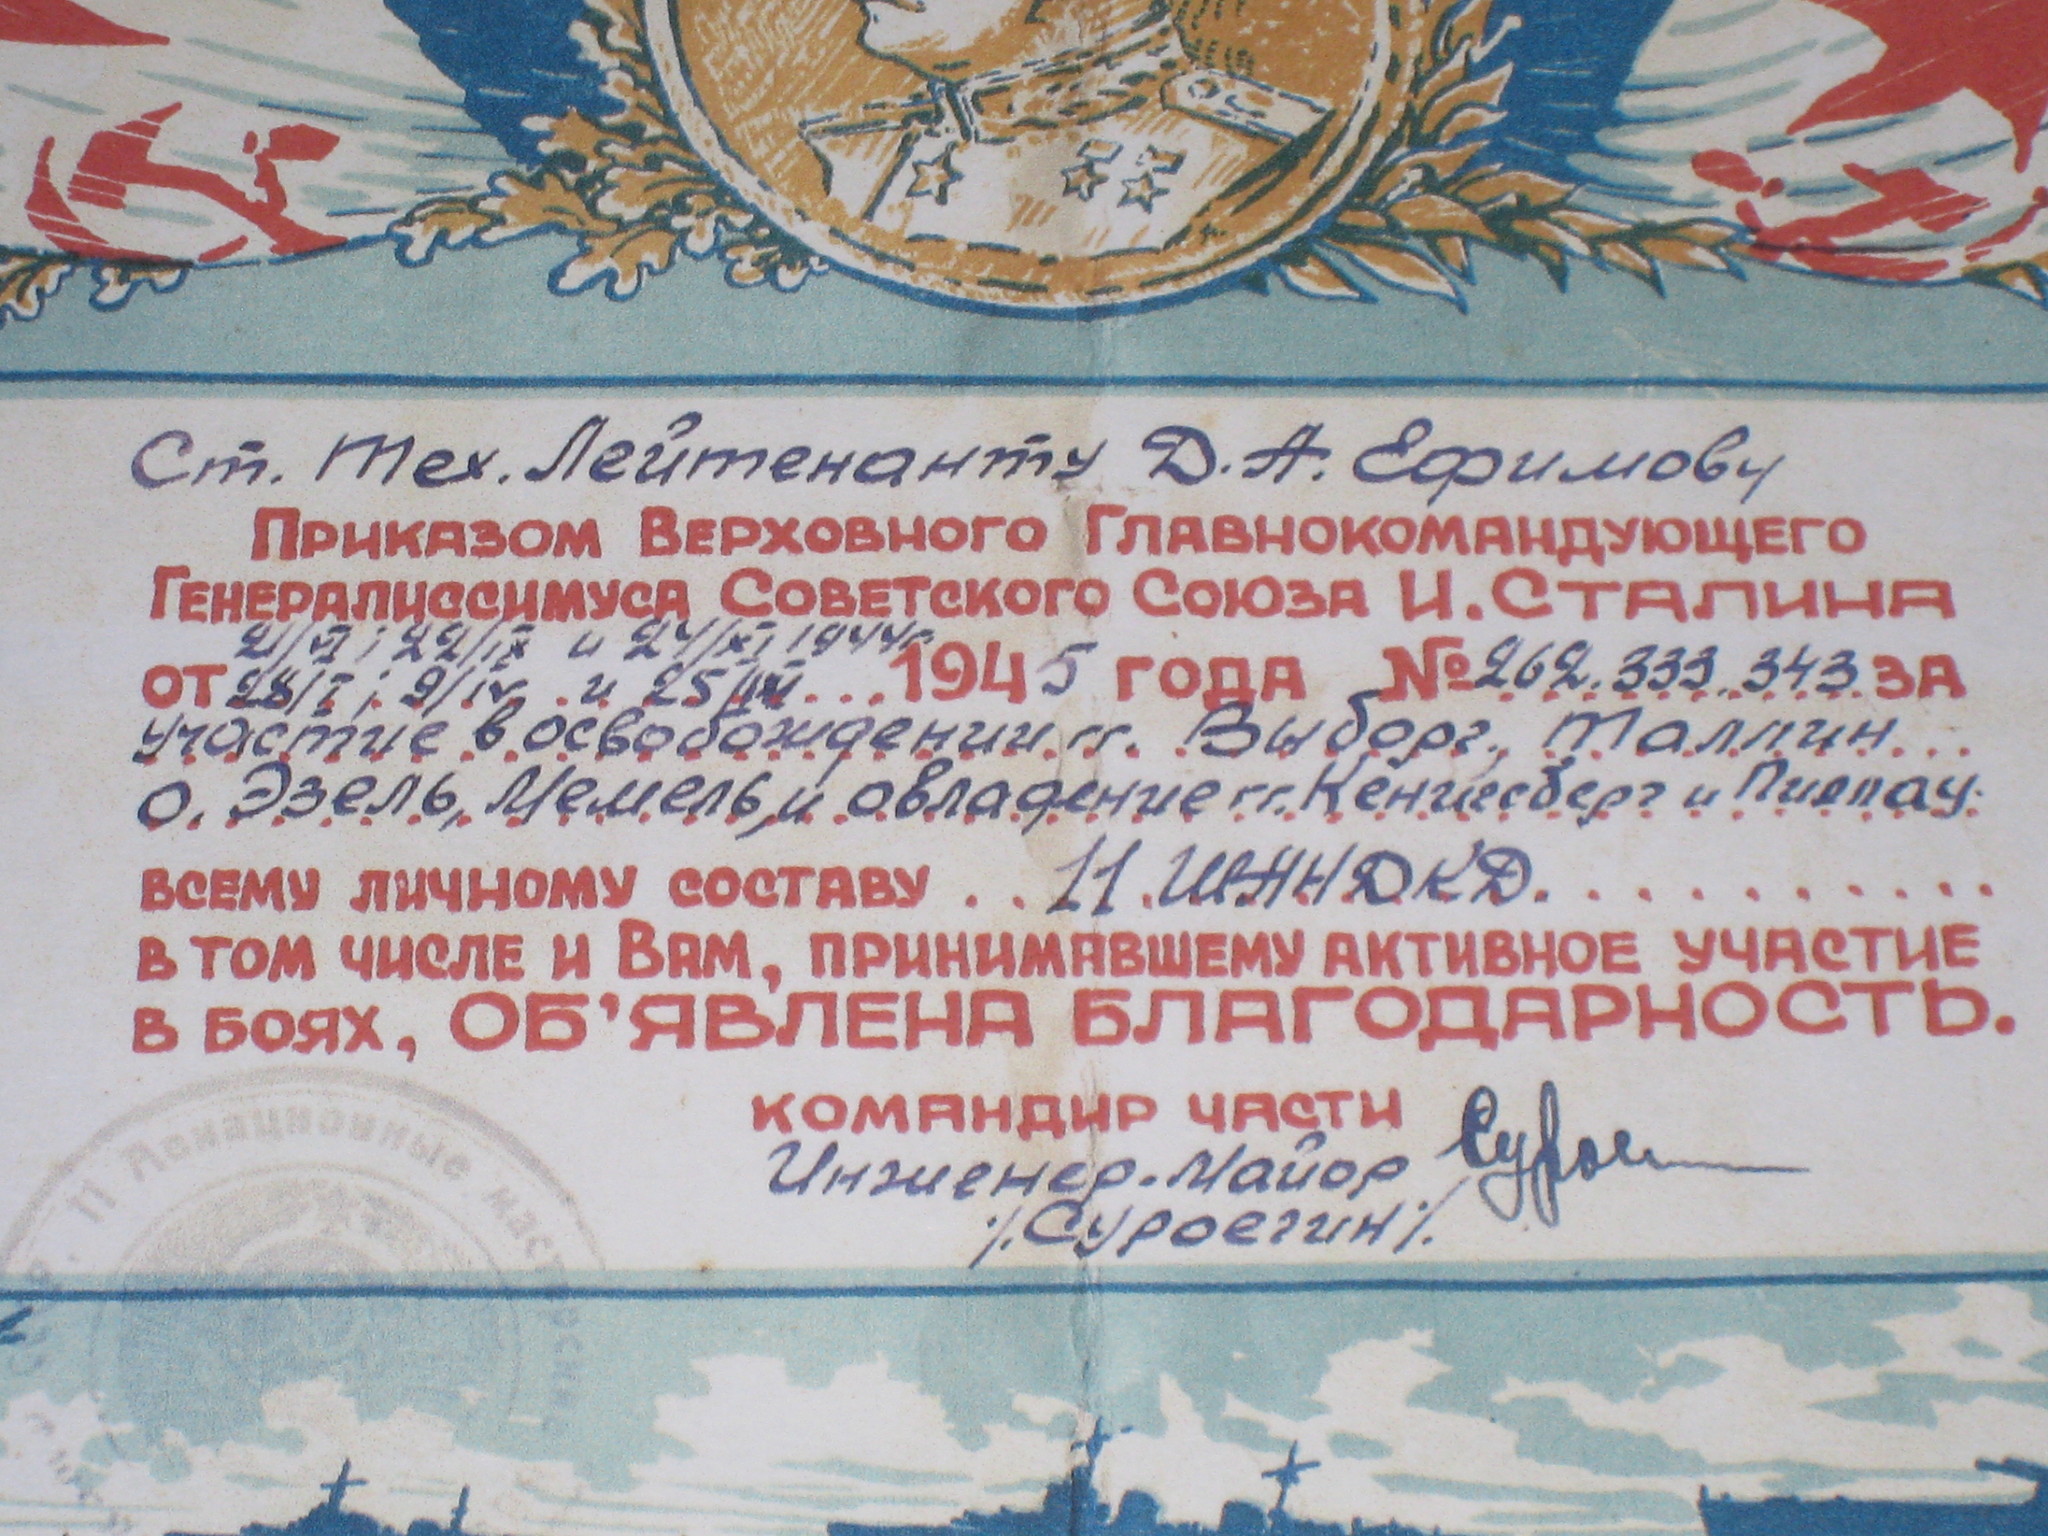 Ст. Тех. Лейтенанту Д. А. Ефимову
Приказом Верховного Главнокомандующего
Генералиссимуса Советского Союза И. Сталина
21/VI; 22/IX и 24/XI 1944г.
от 28/I; 9/IV и 25/IV 1945 года №262.333.343 за
участие в освобождении гг. Выборг, Таллин
о. Эзель, Мемель, и овладение гг. Кенигсберг и Пиллау.
всему личному составу 11 ШАННДКД
в том числе и Вам, принимавшему активное участие
в боях, ОБ'ЯВЛЕНА БЛАГОДАРНОСТЬ.
командир части
Инженер-Майор
/Суроегин/.
11 Авиационные мастерские